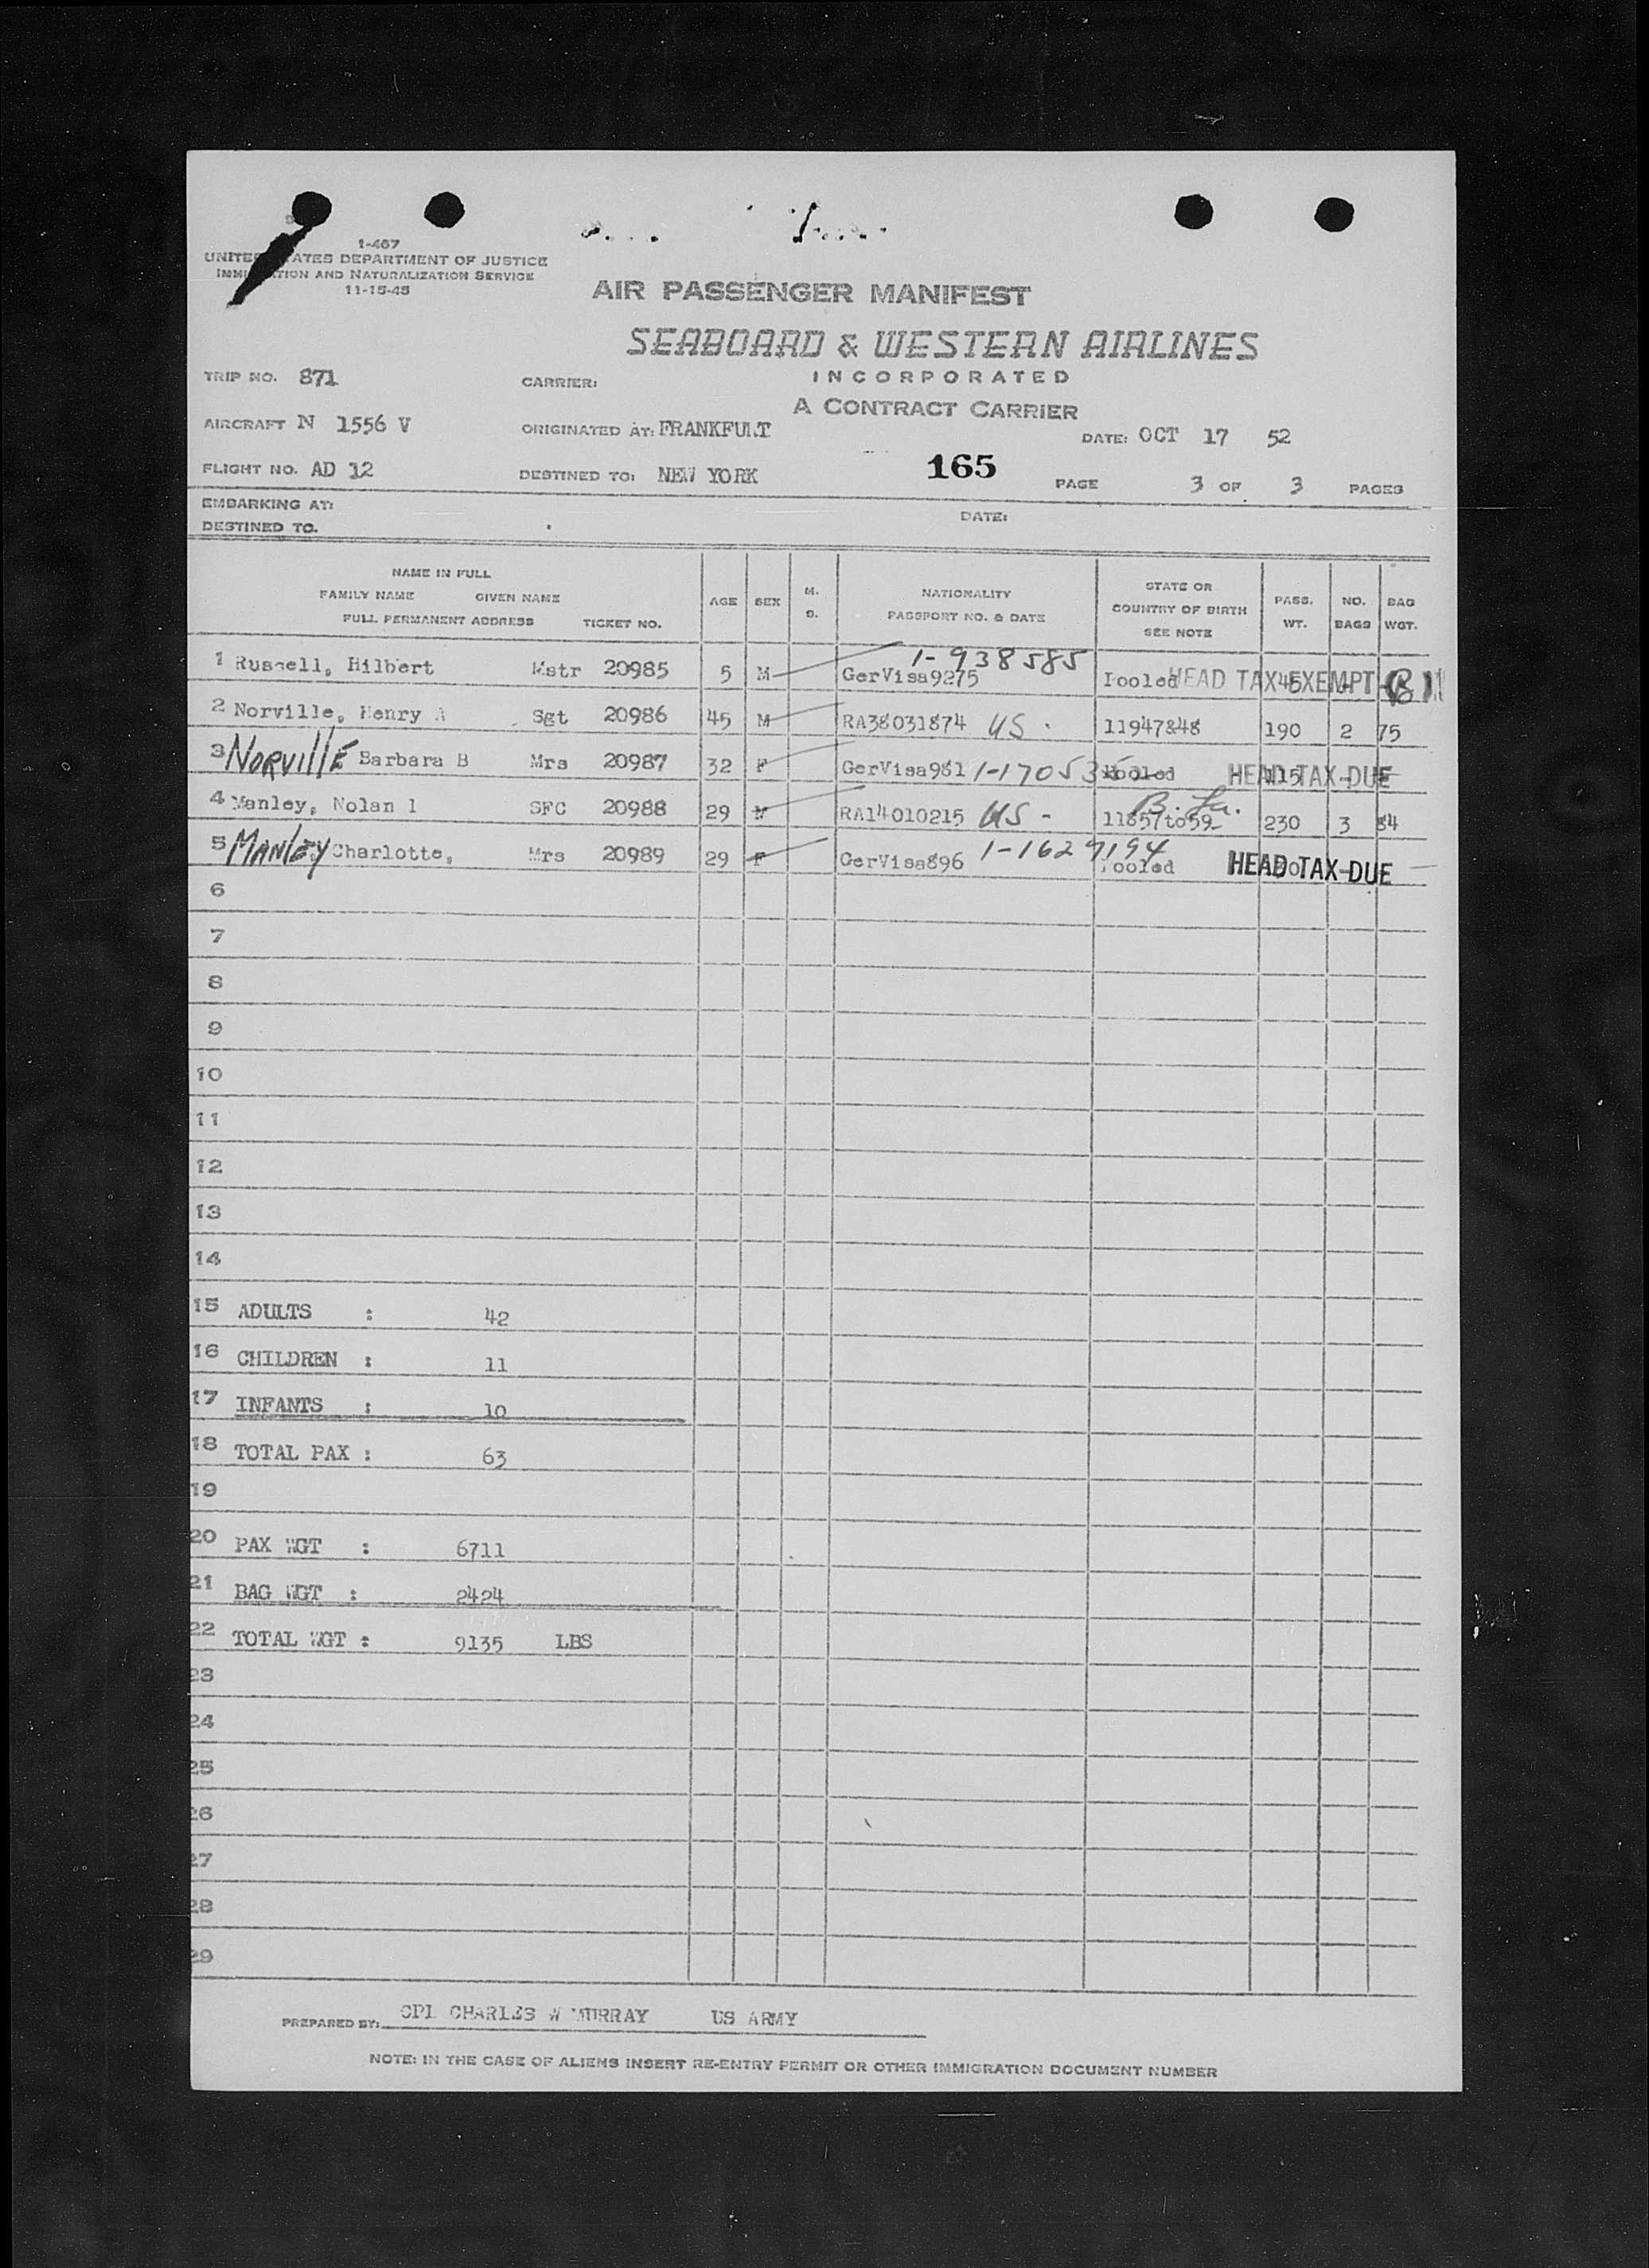 1-467
UNITED STATES DEPARTMENT OF JUSTICE
IMMIGRATION AND NATURALIZATION SERVICE
11-15-45
AIR PASSENGER MANIFEST
SEABOARD & WESTERN AIRLINES
INCORPORATED
A CONTRACT CARRIER
TRIP NO. 871 CARRIER:
AIRCRAFT N 1556 V ORIGINATED AT: FRANKFURT DATE: OCT 17 52
FLIGHT NO. AD 12 DESTINED TO: NEW YORK 165 PAGE 3 OF 3 PAGES
EMBARKING AT:
DESTINED TO. DATE:
NAME IN FULL
FAMILY NAME GIVEN NAME
FULL PERMANENT ADDRESS TICKET NO. AGE SEX M. S. NATIONALITY PASSPORT NO. & DATE STATE OR COUNTRY OF BIRTH SEE NOTE PASS. WT. NO. BAGS BAG WGT.
1 Russell, Hilbert Mstr 20985 5 M GerVisa9275 1-938585 Pooled 45 HEAD TAX EXEMPT
2 Norville, Henry A Sgt 20986 45 M RA38031874 US 11947&48 190 2 75
3 NORVILLE Barbara B Mrs 20987 32 F GerVisa981 Pooled 115 HEAD TAX DUE
4 Manley, Nolan l SFC 20988 29 M RA14010215 US - 11857to59 230 3 84
5 MANLEY Charlotte, Mrs 20989 29 F GerVisa896 1-1629194 Pooled HEAD TAX DUE
6
7
8
9
10
11
12
13
14
15 ADULTS : 42
16 CHILDREN : 11
17 INFANTS : 10
18 TOTAL PAX : 63
19
20 PAX WGT : 6711
21 BAG WGT : 2424
22 TOTAL WGT : 9135 LBS
23
24
25
26
27
28
29
PREPARED BY: CPL CHARLES W MURRAY US ARMY
NOTE: IN THE CASE OF ALIENS INSERT RE-ENTRY PERMIT OR OTHER IMMIGRATION DOCUMENT NUMBER